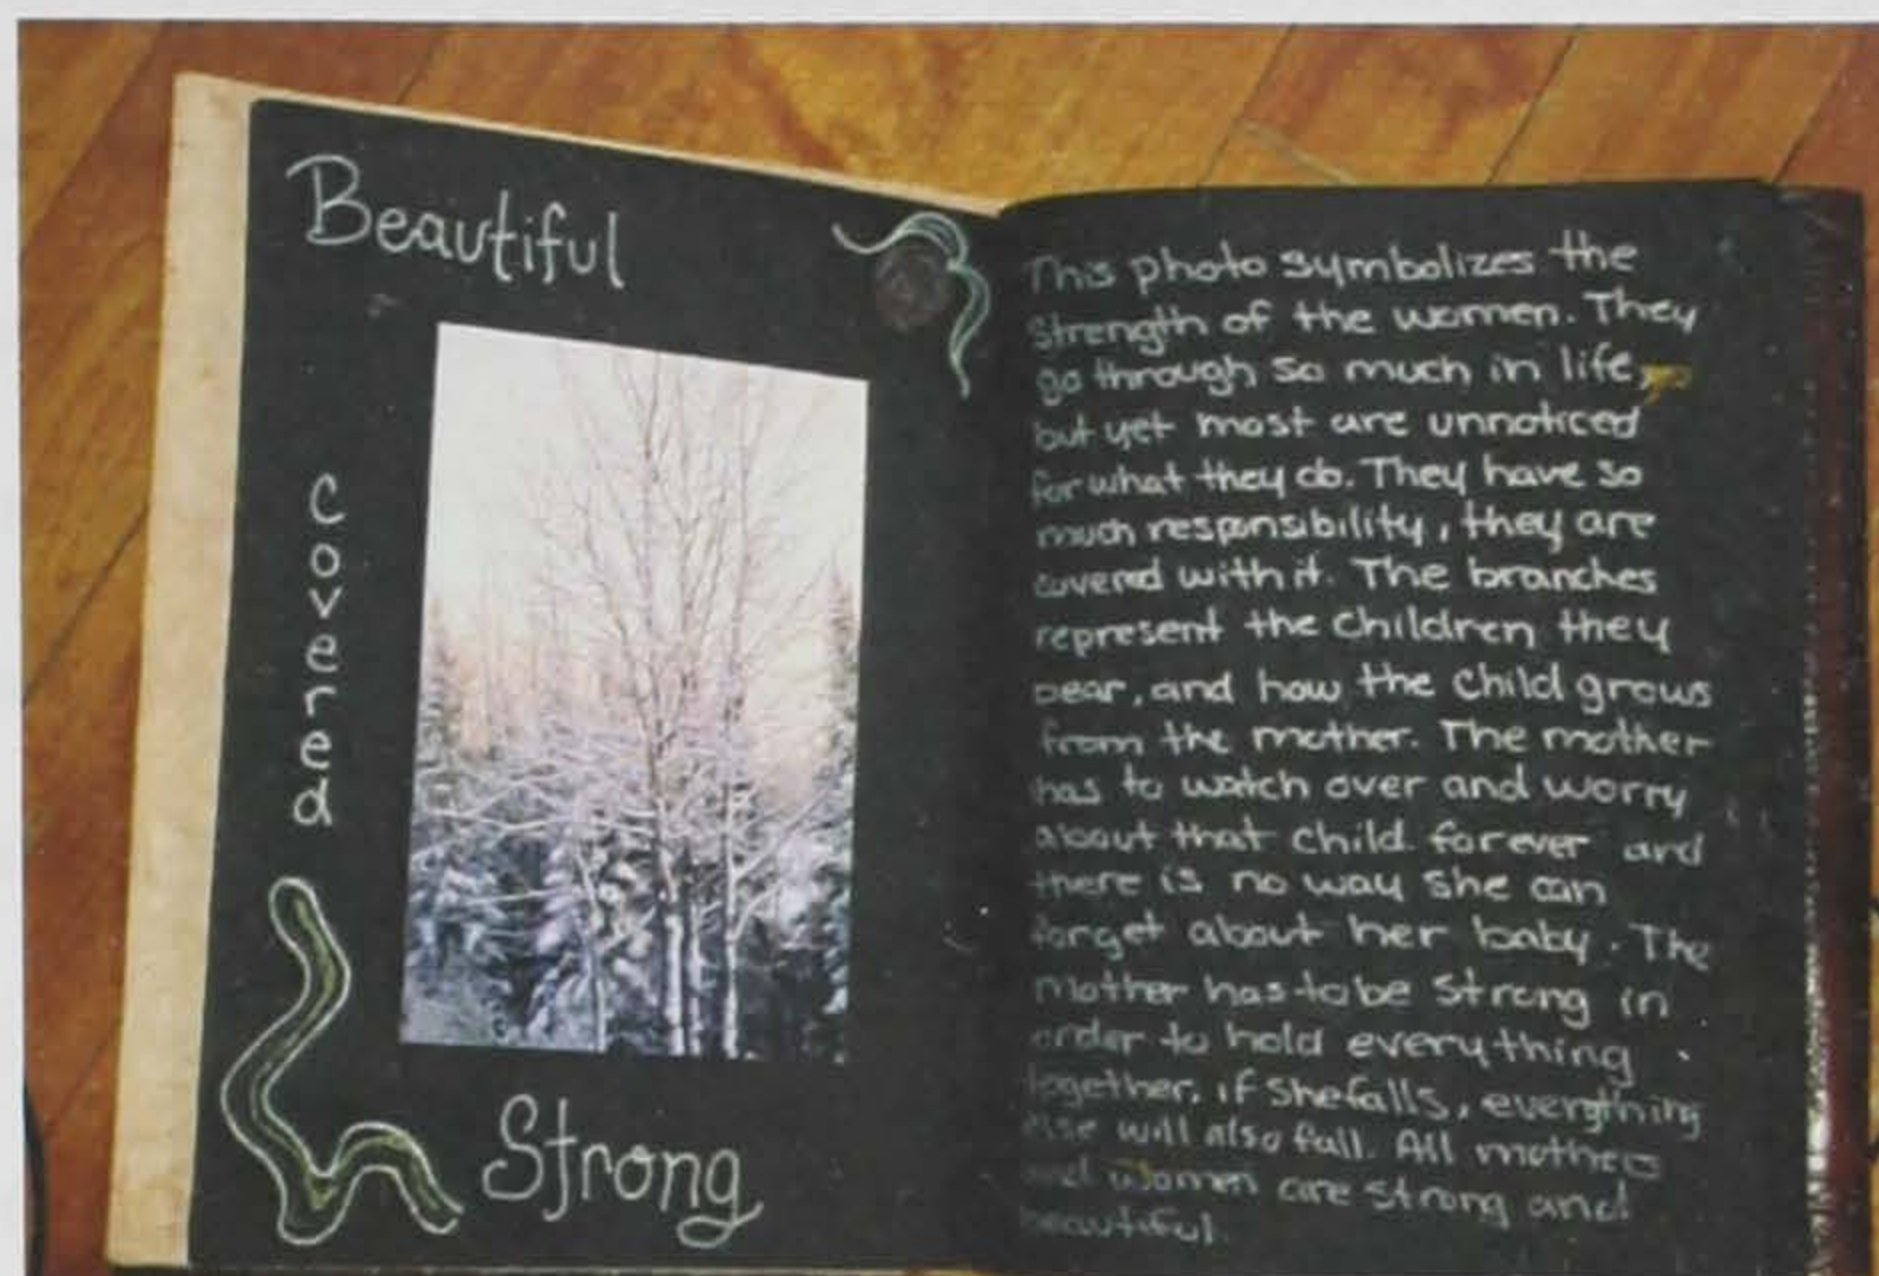 Beautiful
Covered
Strong
This photo symbolizes the
strength of the women. They
go through so much in life,
but yet most are unnoticed
for what they do. They have so
much responsibility, they are
covered with it. The branches
represent the children they
bear, and how the child grows
from the mother. The mother
has to watch over and worry
about that child forever and
there is no way she can
forget about her baby. The
mother has to be strong in
order to hold everything
together, if she falls, everything
else will also fall. All mothers
and women are strong and
beautiful.